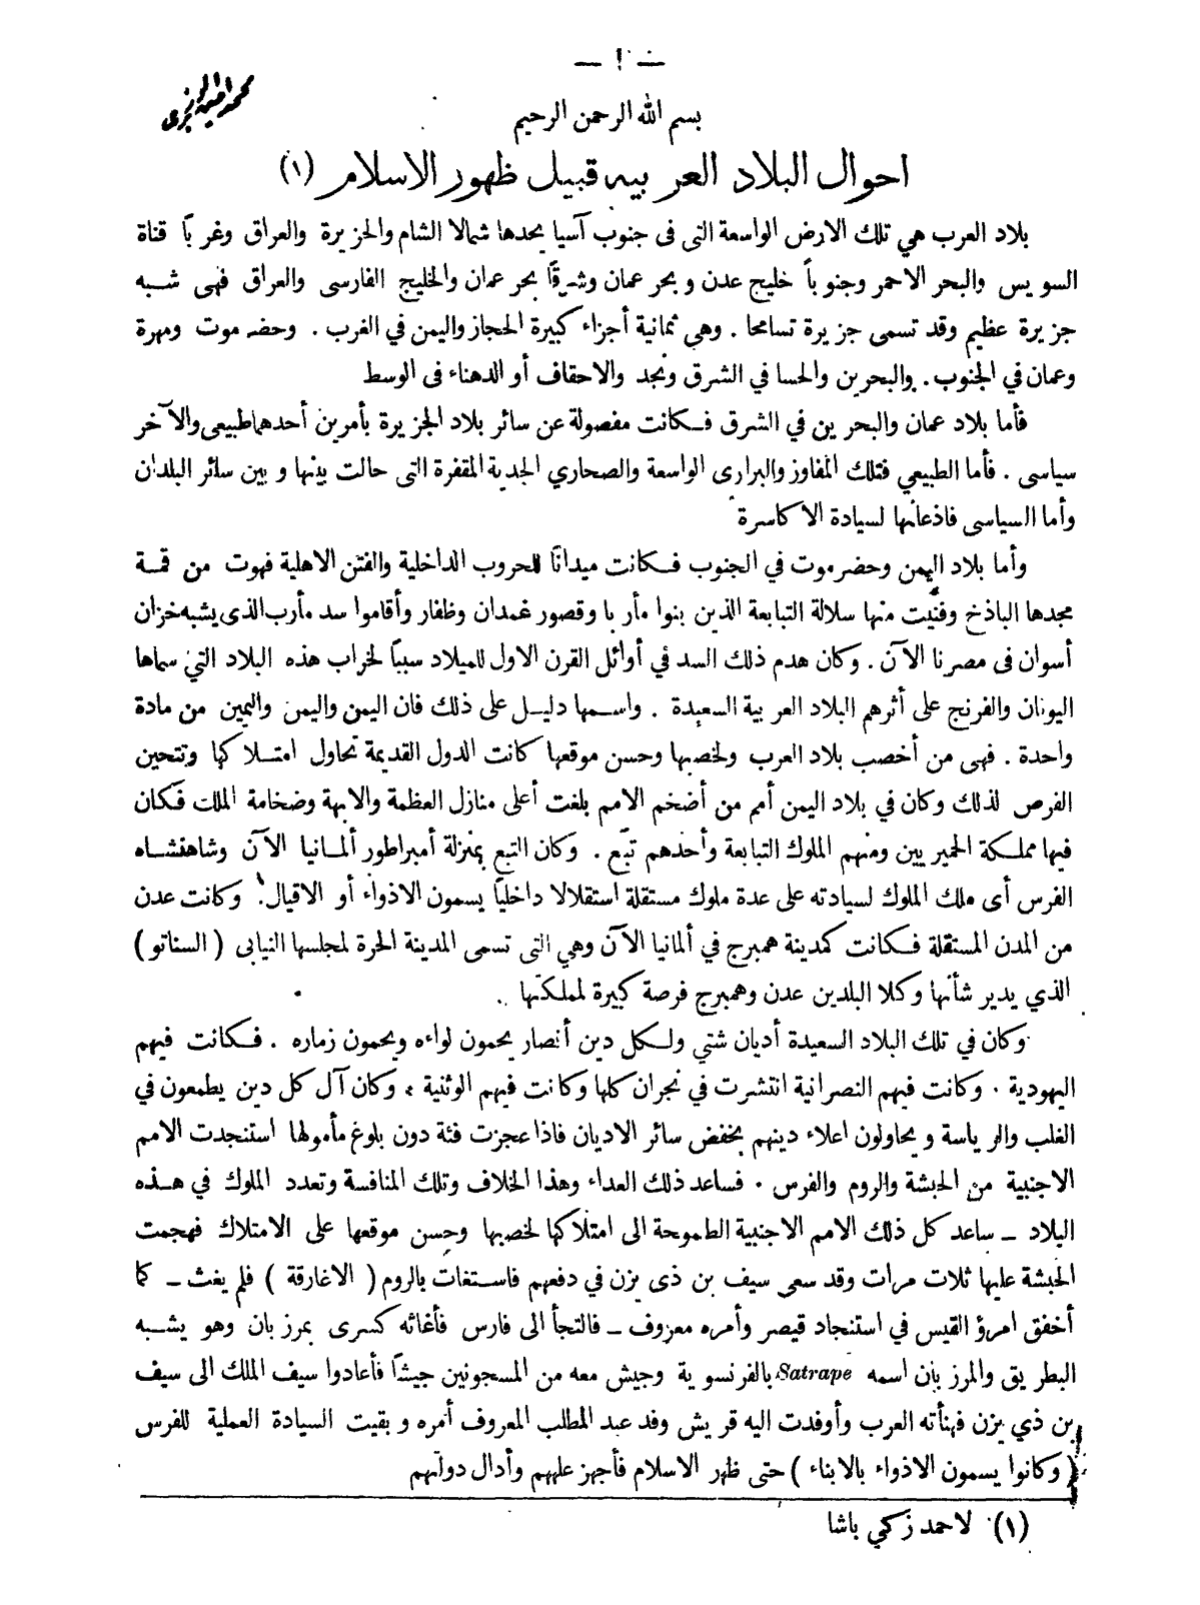 — ١ —
بسم الله الرحمن الرحيم
احوال البلاد العربيه قبيل ظهور الاسلام (١)
بلاد العرب هي تلك الارض الواسعة التى فى جنوب آسيا يحدها شمالا الشام والجزيرة والعراق وغربًا قناة
السويس والبحر الاحمر وجنوبًا خليج عدن وبحر عمان وشرقًا بحر عمان والخليج الفارسى والعراق فهى شبه
جزيرة عظيم وقد تسمى جزيرة تسامحا . وهي ثمانية أجزاء كبيرة الحجاز واليمن في الغرب . وحضرموت ومهرة
وعمان في الجنوب . والبحرين والحسا في الشرق ونجد والاحقاف أو الدهناء فى الوسط
فأما بلاد عمان والبحرين في الشرق فكانت مفصولة عن سائر بلاد الجزيرة بأمرين أحدهما طبيعى والآخر
سياسى . فأما الطبيعي فتلك المفاوز والبرارى الواسعة والصحاري الجدبة المقفرة التى حالت بينها وبين سائر البلدان
وأما السياسى فاذعانها لسيادة الاكاسرة
وأما بلاد اليمن وحضرموت في الجنوب فكانت ميدانًا للحروب الداخلية والفتن الاهلية فهوت من قمة
مجدها الباذخ وفنيت منها سلالة التبابعة الذين بنوا مأربا وقصور غمدان وظفار وأقاموا سد مأرب الذى يشبه خزان
أسوان فى مصرنا الآن . وكان هدم ذلك السد في أوائل القرن الاول للميلاد سببًا لخراب هذه البلاد التي سماها
اليونان والفرنج على أثرهم البلاد العربية السعيدة . واسمها دليل على ذلك فان اليمن واليمن واليمين من مادة
واحدة . فهى من أخصب بلاد العرب ولخصبها وحسن موقعها كانت الدول القديمة تحاول امتلاكها وتتحين
الفرص لذلك وكان في بلاد اليمن أمم من أضخم الامم بلغت أعلى منازل العظمة والابهة وضخامة الملك فكان
فيها مملكة الحميريين ومنهم الملوك التبابعة وأحدهم تبّع . وكان التبع بمنزلة أمبراطور ألمانيا الآن وشاهنشاه
الفرس أى ملك الملوك لسيادته على عدة ملوك مستقلة استقلالا داخليًا يسمون الاذواء أو الاقيال . وكانت عدن
من المدن المستقلة فكانت كمدينة همبرج في ألمانيا الآن وهي التى تسمى المدينة الحرة لمجلسها النيابى ( السناتو )
الذي يدير شأنها وكلا البلدين عدن وهمبرج فرصة كبيرة لمملكتها .
وكان في تلك البلاد السعيدة أديان شتي ولكل دين أنصار يحمون لواءه ويحمون زماره . فكانت فيهم
اليهودية . وكانت فيهم النصرانية انتشرت في نجران كلها وكانت فيهم الوثنية . وكان آل كل دين يطمعون في
الغلب والرياسة ويحاولون اعلاء دينهم بخفض سائر الاديان فاذا عجزت فئة دون بلوغ مأمولها استنجدت الامم
الاجنبية من الحبشة والروم والفرس . فساعد ذلك العداء وهذا الخلاف وتلك المنافسة وتعدد الملوك في هذه
البلاد ـ ساعد كل ذلك الامم الاجنبية الطموحة الى امتلاكها لخصبها وحسن موقعها على الامتلاك فهجمت
الحبشة عليها ثلاث مرات وقد سعى سيف بن ذى يزن في دفعهم فاستغاث بالروم ( الاغارقة ) فلم يغث ـ كما
أخفق امرؤ القيس في استنجاد قيصر وأمره معروف ـ فالتجأ الى فارس فأغاثه كسرى بمرزبان وهو يشبه
البطريق والمرزبان اسمه Satrape بالفرنسوية وجيش معه من المسجونين جيشًا فأعادوا سيف الملك الى سيف
بن ذي يزن فهنأته العرب وأوفدت اليه قريش وفد عبد المطلب المعروف أمره وبقيت السيادة العملية للفرس
( وكانوا يسمون الاذواء بالابناء ) حتى ظهر الاسلام فأجهز عليهم وأدال دولتهم
(١) لاحمد زكي باشا